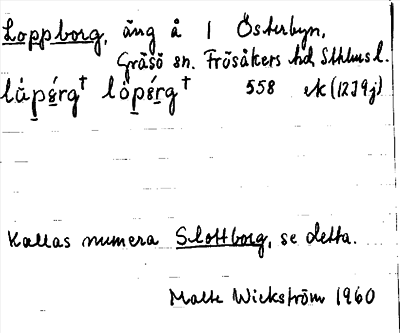 Loppborg, äng å 1 Österbyn,
Gräsö sn. Frösåkers hd Sthlms l.
558 ek (12J9j)
Kallas numera Slottborg, se detta.
Malte Wickström 1960